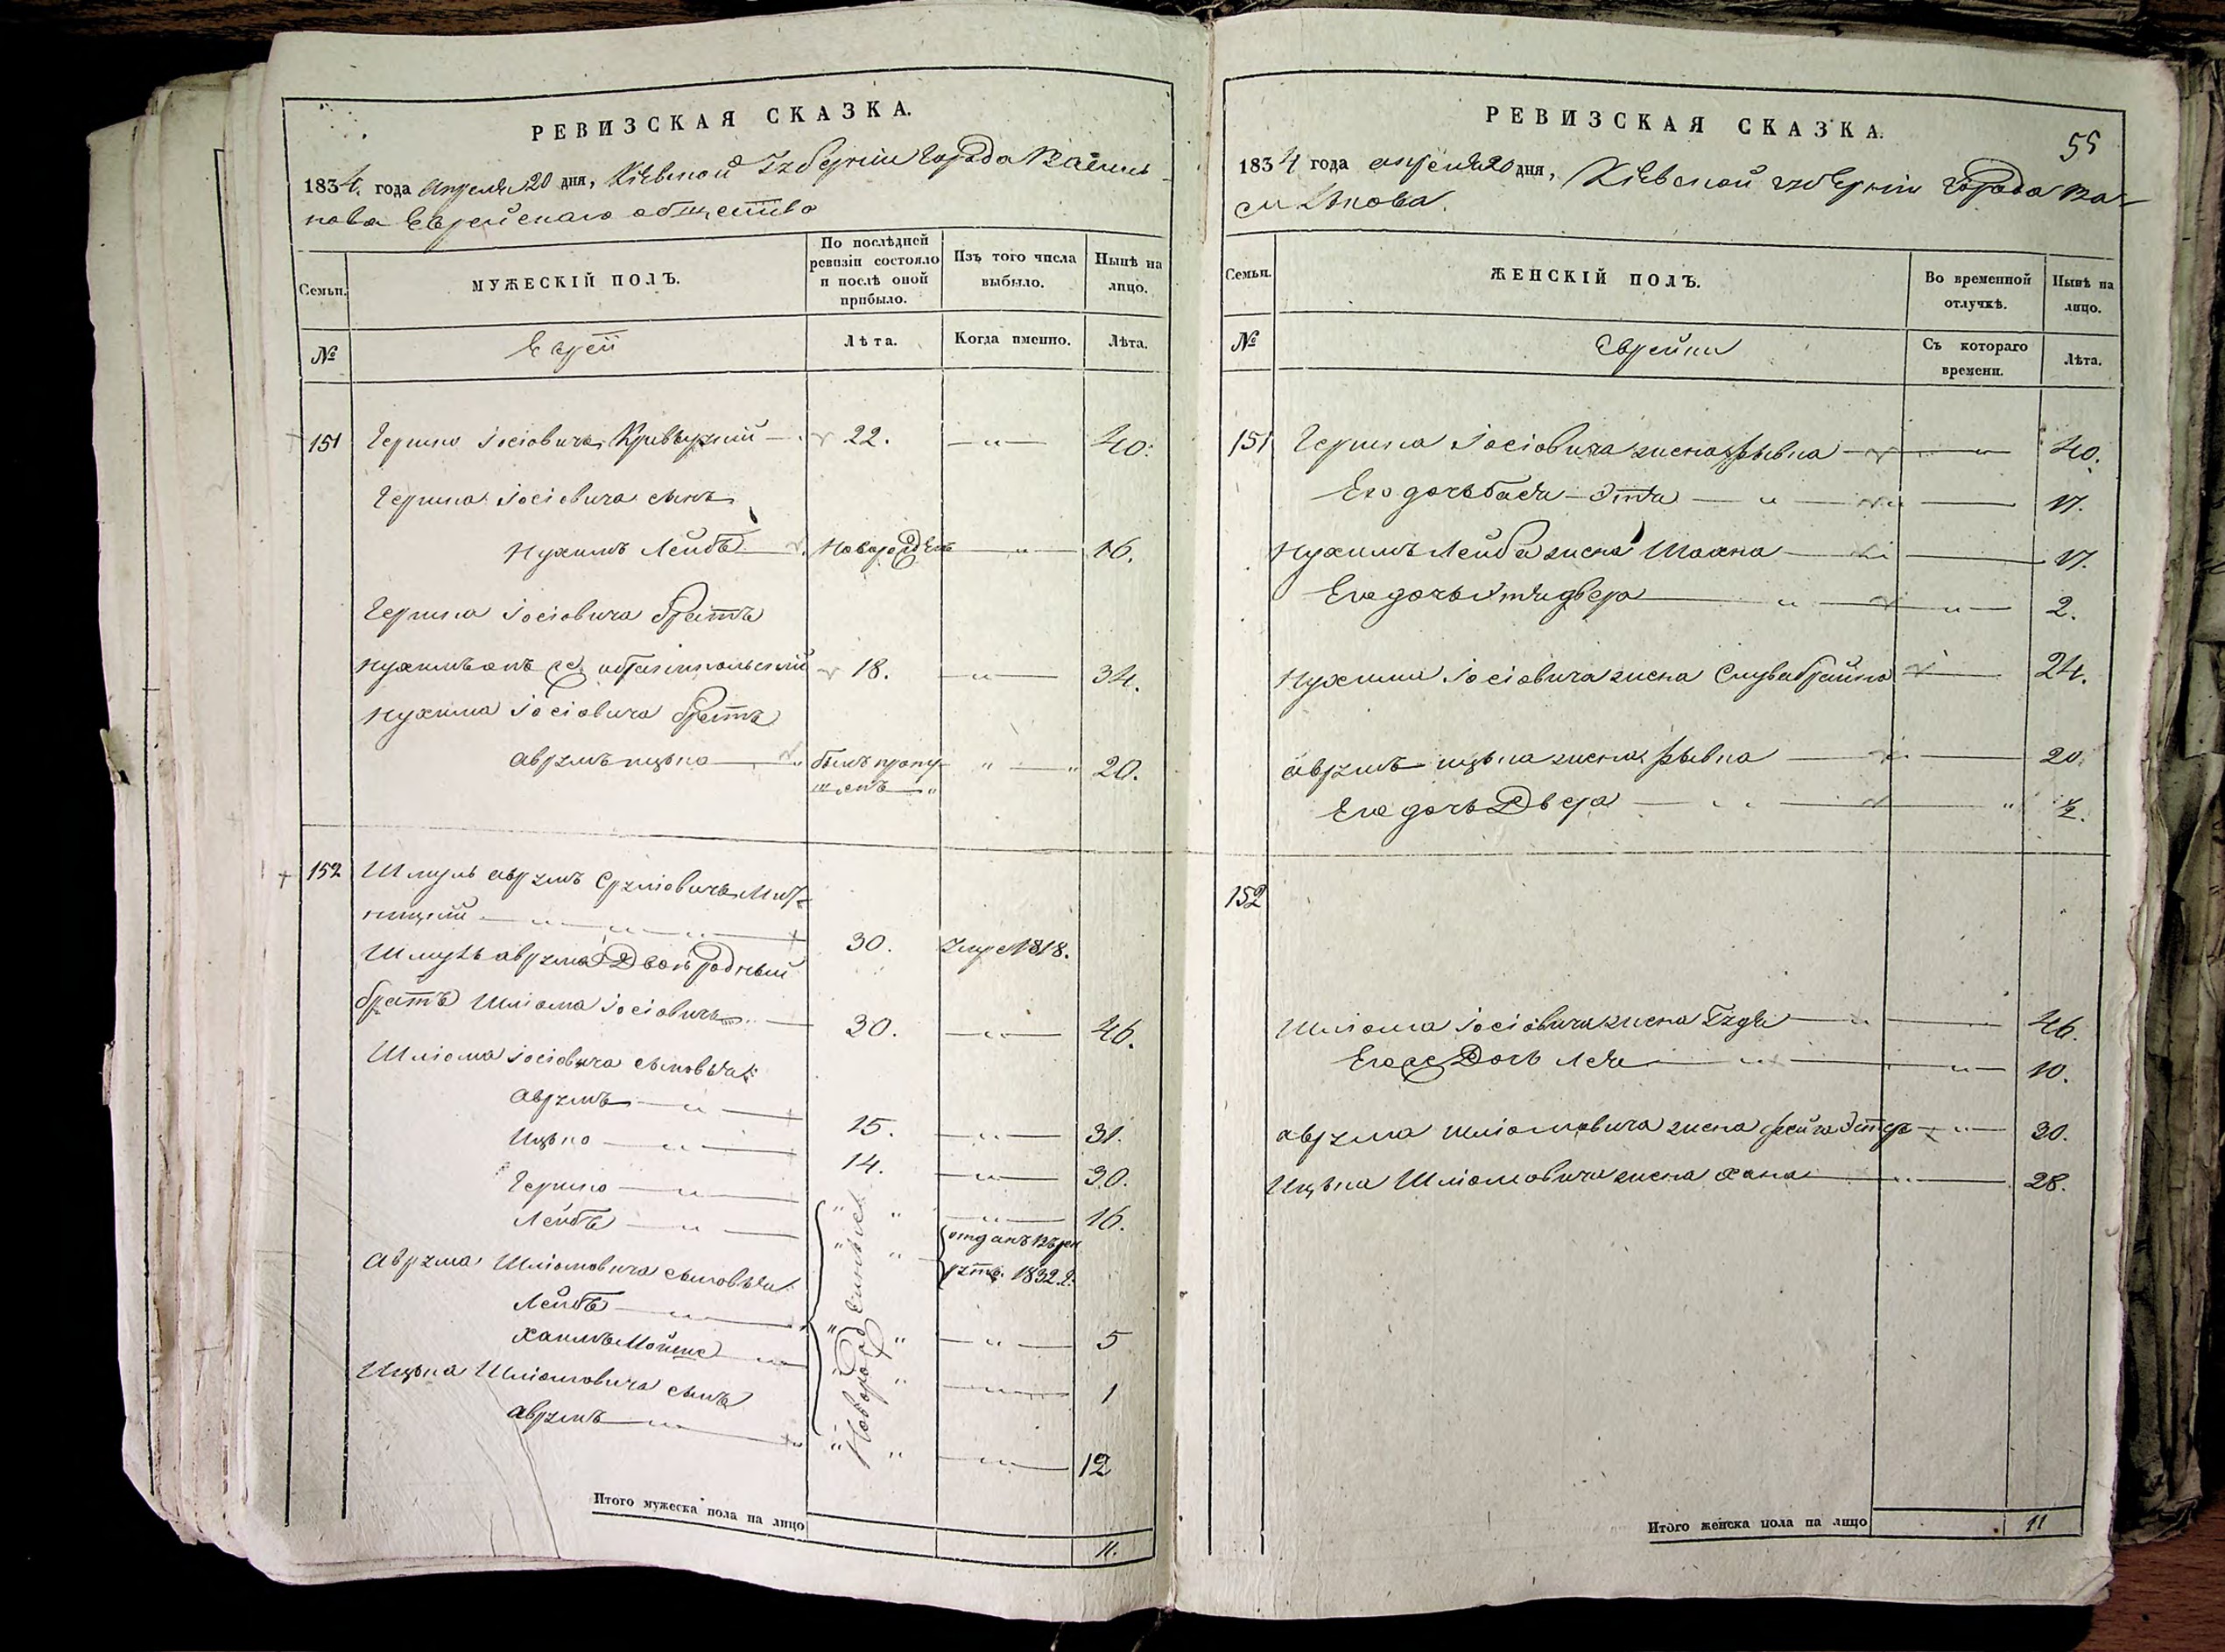 РЕВИЗСКАЯ СКАЗКА.
1834 года Апреля 20 дня, Кіевской Губерніи Города Василь-
кова Еврейскаго общества
Семьи.
МУЖЕСКІЙ ПОЛЪ.
По послѣдней ревизіи состояло и послѣ оной прибыло.
Изъ того числа выбыло.
Нынѣ на лицо.
№
Евреи
Лѣта.
Когда именно.
Лѣта.
151 Гершко Іосіовичъ 22. 40.
Гершка Іосіовича сынъ
Нухимъ Лейба Новорожденъ 16.
Гершка Іосіовича братъ
Нухимъ онъ же 18. 34.
Нухима Іосіовича братъ
Аврумъ Ицько былъ пропу- 20.
щенъ
152 Шмуль Аврумъ Сруліовичъ
30. умре 1818.
Шмуль Аврума Двоюродный
братъ Шліома Іосіовичъ 30. 46.
Шліома Іосіовича сыновья:
Аврумъ 15. 31.
Ицько 14. 30.
Гершко 16.
Лейба отданъ въ рек
руты 1832 г.
Новорожденные
Аврума Шліомовича сыновья
Лейба 5
Хаимъ Мойше 1
Ицька Шліомовича сынъ
Аврумъ 12
Итого мужеска пола на лицо
11.
РЕВИЗСКАЯ СКАЗКА.
55
1834 года апреля 20 дня, Кіевской губерніи города Ва-
силькова
Семьи.
ЖЕНСКІЙ ПОЛЪ.
Во временной отлучкѣ.
Нынѣ на лицо.
№
Еврейки
Съ котораго времени.
Лѣта.
151 Гершка Іосіовича жена Рывка 40.
Его дочь Бася-Этя 17.
Нухимъ Лейба жена 17.
Его дочь 2.
Нухима Іосіовича жена 24.
Аврумъ Ицька жена Рывка 20.
Его дочь Двера ½.
152
Шліома Іосіовича жена Гудя 46.
Его же Дочь Лея 10.
Аврума Шліомовича жена Фейга Эстеръ 30.
Ицька Шліомовича жена Хана 28.
Итого женска пола на лицо
11